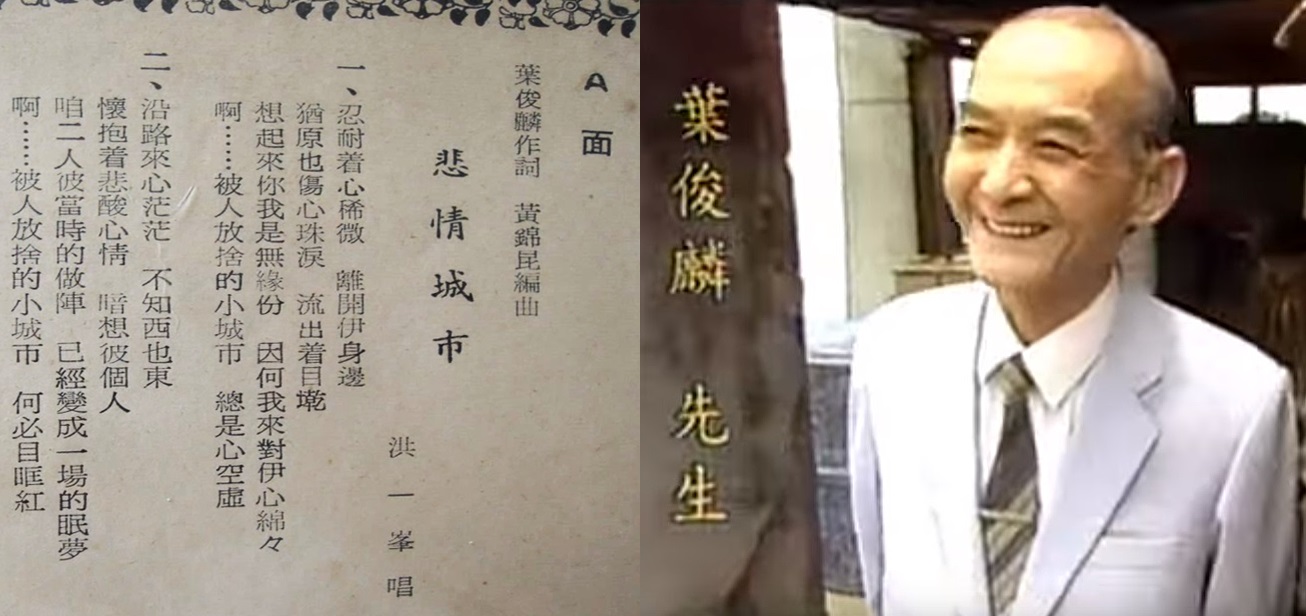 A面
葉俊麟作詞 黃錦昆編曲
悲情城市
洪一峯唱
一、忍耐着心稀微 離開伊身邊
猶原也傷心珠淚 流出着目墘
想起來你我是無緣份 因何我來對伊心綿々
啊……被人放捨的小城市 總是心空虛
二、沿路來心茫茫 不知西也東
懷抱着悲酸心情 暗想彼個人
咱二人彼當時的做陣 已經變成一場的眠夢
啊……被人放捨的小城市 何必目眶紅
葉俊麟 先生